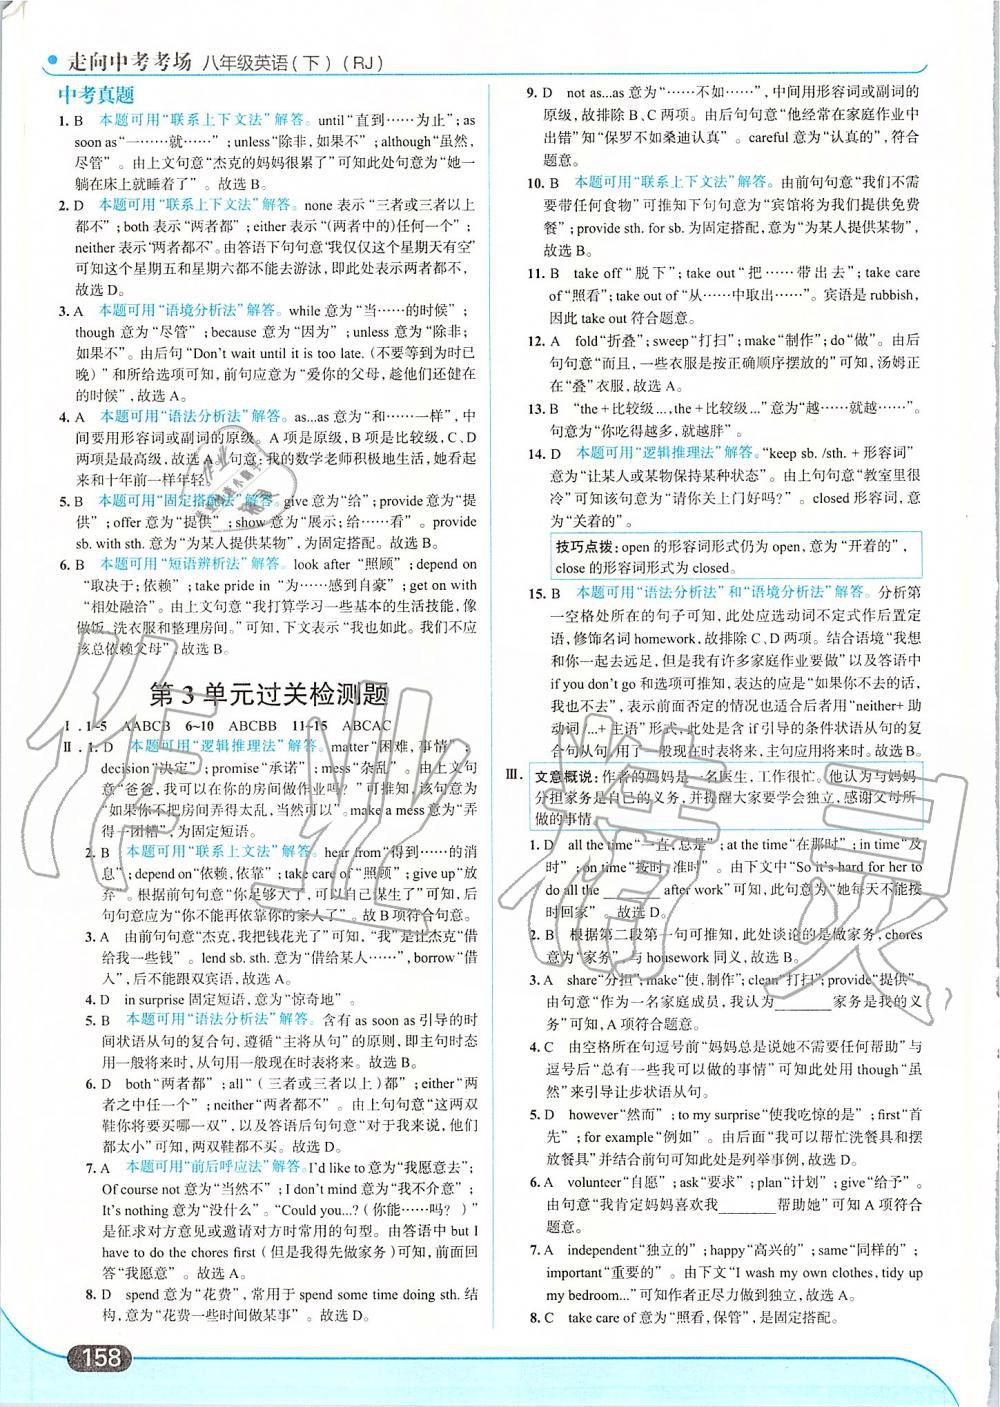 走向中考考场 八年级英语(下)(RJ)
中考真题
1. B 本题可用“联系上下文法”解答。until“直到……为止”;as
soon as“一……就……”;unless“除非,如果不”;although“虽然,
尽管”。由上文句意“杰克的妈妈很累了”可知此处句意为“她一
躺在床上就睡着了”。故选 B。
2. D 本题可用“联系上下文法”解答。none 表示“三者或三者以上
都不”;both 表示“两者都”;either 表示“(两者中的)任何一个”;
neither 表示“两者都不”。由答语下句句意“我仅仅这个星期天有空”
可知这个星期五和星期六都不能去游泳,即此处表示两者都不,
故选 D。
3. A 本题可用“语境分析法”解答。while 意为“当……的时候”;
though 意为“尽管”;because 意为“因为”;unless 意为“除非;
如果不”。由后句“Don't wait until it is too late.(不要等到为时已
晚)”和所给选项可知,前句应意为“爱你的父母,趁他们还健在
的时候”,故选 A。
4. A 本题可用“语法分析法”解答。as...as 意为“和……一样”,中
间要用形容词或副词的原级。A 项是原级,B 项是比较级,C、D
两项是最高级,故选 A。句意:我的数学老师积极地生活,她看起
来和十年前一样年轻。
5. B 本题可用“固定搭配法”解答。give 意为“给”;provide 意为“提
供”;offer 意为“提供”;show 意为“展示;给……看”。provide
sb. with sth. 意为“为某人提供某物”,为固定搭配。故选 B。
6. B 本题可用“短语辨析法”解答。look after “照顾”,depend on
“取决于;依赖”,take pride in “为……感到自豪”,get on with
“相处融洽”。由上文句意“我打算学习一些基本的生活技能,像
做饭、洗衣服和整理房间。”可知,下文表示“我也如此。我们不应
该总依赖父母”,故选 B。
第 3 单元过关检测题
Ⅰ. 1~5 AABCB 6~10 ABCBB 11~15 ABCAC
Ⅱ. 1. D 本题可用“逻辑推理法”解答。matter“困难,事情”;
decision“决定”;promise“承诺”;mess“杂乱”。由上文句
意“爸爸,我可以在你的房间做作业吗?”可推知,该句意为
“如果你不把房间弄得太乱,当然可以”。make a mess 意为“弄
得一团糟”,为固定短语。
2. B 本题可用“联系上下文法”解答。hear from“得到……的消
息”;depend on“依赖,依靠”;take care of“照顾”;give up“放
弃”。根据前句句意“你足够大了,可以自己谋生了”可知,后
句句意应为“你不能再依靠你的家人了”。故 B 项符合句意。
3. A 由前句句意“杰克,我把钱花光了”可知,“我”是让杰克“借
给我一些钱”。lend sb. sth. 意为“借给某人……”,borrow“借
入”,后不能跟双宾语,故选 A。
4. D in surprise 固定短语,意为“惊奇地”。
5. B 本题可用“语法分析法”解答。含有 as soon as 引导的时
间状语从句的复合句,遵循“主将从句”的原则,即主句时态
用一般将来时,从句用一般现在时表将来。故选 B。
6. D both“两者都”;all“(三者或三者以上)都”;either“两
者之中任一个”;neither“两者都不”。由上句句意“这两双
鞋你将要买哪一双”,以及答语后句句意“对于我来说,他们
都太小”可知,两双鞋都不买。故选 D。
7. A 本题可用“前后呼应法”解答。I'd like to 意为“我愿意去”;
Of course not 意为“当然不”;I don't mind 意为“我不介意”;
It's nothing 意为“没什么”。“Could you...?(你能……吗?)”
是征求对方意见或邀请对方时常用的句型。由答语中 but I
have to do the chores first(但是我得先做家务)可知,前面回
答“我愿意”。故选 A。
8. D spend 意为“花费”,常用于 spend some time doing sth. 结
构,意为“花费一些时间做某事”。故选 D。
9. D not as...as 意为“……不如……”,中间用形容词或副词的
原级,故排除 B、C 两项。由后句句意“他经常在家庭作业中
出错”知“保罗不如桑迪认真”。careful 意为“认真的”,符合
题意。
10. B 本题可用“联系上下文法”解答。由前句句意“我们不需
要带任何食物”可推知下句句意为“宾馆将为我们提供免费
餐”;provide sth. for sb. 为固定搭配,意为“为某人提供某物”,
故选 B。
11. B take off“脱下”;take out“把……带出去”;take care
of“照看”;take out of“从……中取出……”。宾语是 rubbish,
因此 take out 符合题意。
12. A fold“折叠”;sweep“打扫”;make“制作”;do“做”。由后
句句意“而且,一些衣服是按正确顺序摆放的”可知,汤姆正
在“叠”衣服,故选 A。
13. B “the + 比较级..., the + 比较级...”意为“越……就越……”。
句意为“你吃得越多,就越胖”。
14. D 本题可用“逻辑推理法”解答。“keep sb. /sth. + 形容词”
意为“让某人或某物保持某种状态”。由上句句意“教室里很
冷”可知该句意为“请你关上门好吗?”。closed 形容词,意
为“关着的”。
技巧点拨:open 的形容词形式仍为 open,意为“开着的”,
close 的形容词形式为 closed。
15. B 本题可用“语法分析法”和“语境分析法”解答。分析第
一空格处所在的句子可知,此处应选动词不定式作后置定
语,修饰名词 homework,故排除 C、D 两项。结合语境“我想
和你一起去远足,但是我有很多家庭作业要做”以及答语中
if you don't go 可知,表达的应是“如果你不去的话,我也
不去”,表示前面否定的情况也适合后者用“neither+ 助
动词 /...+ 主语”形式,且此处是含 if 引导的条件状语从句的复
合句从句,用了一般现在时表将来,主句应用将来时。故选 B。
Ⅲ. 文意概说:作者的妈妈是一名医生,工作很忙。他认为与妈妈
分担家务是自己的义务,并提醒大家要学会独立,感谢父母所
做的事情。
1. D all the time“一直;总是”;at the time“在那时”;in time“及
时”;on time“按时,准时”。由下文中“So it's hard for her to
do all the ______ after work”可知,此句意为“她每天不能按
时回家”。故选 D。
2. B 根据第二段第一句可推知,此处谈论的是做家务,chores
意为“家务”,与 housework 同义,故选 B。
3. A share“分担”;make“使,制作”;clean“打扫”;provide“提供”。
由句意“作为一名家庭成员,我认为______家务是我的义
务”可知,A 项符合题意。
4. C 由空格所在句逗号前“妈妈总是说她不需要任何帮助”与
逗号后“总有一些我可以做的事情”可知此处用 though“虽
然”来引导让步状语从句。
5. D however“然而”;to my surprise“使我吃惊的是”;first“首
先”;for example“例如”。由后面“我可以帮忙洗餐具和摆
放餐具”并结合前句可知此处是列举事例,故选 D。
6. A volunteer“自愿”;ask“要求”;plan“计划”;give“给予”。
由句意“我肯定妈妈喜欢我______帮助她”可知 A 项符合
题意。
7. A independent“独立的”;happy“高兴的”;same“同样的”;
important“重要的”。由下文“I wash my own clothes, tidy up
my bedroom...”可知作者正尽力做到独立,故选 A。
8. C take care of 意为“照看,保管”,是固定搭配。
158
作业精灵